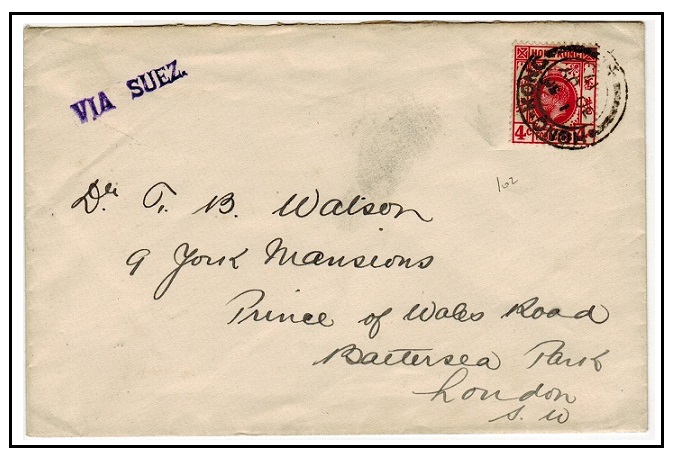 VIA SUEZ
HONG KONG
4c
HONG KONG
102
Dr. T. B. Watson
9 York Mansions
Prince of Wales Road
Battersea Park
London
S. W